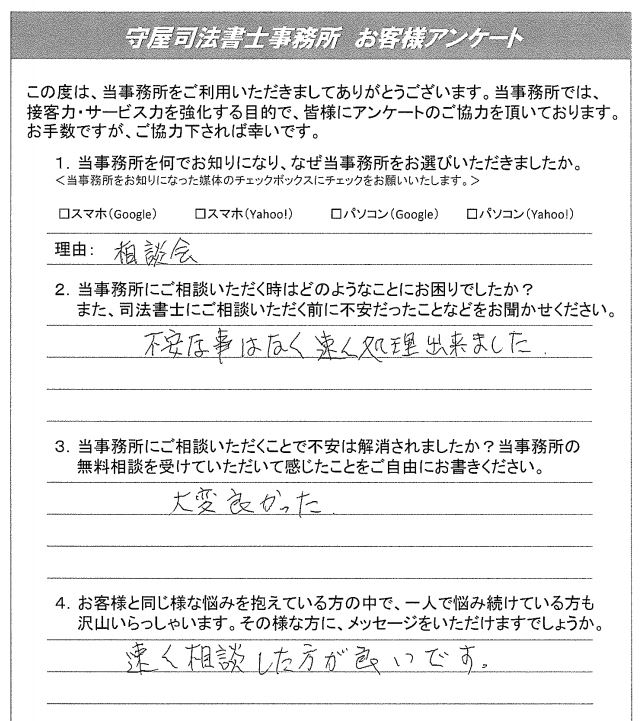 守屋司法書士事務所 お客様アンケート
この度は、当事務所をご利用いただきましてありがとうございます。当事務所では、
接客力・サービス力を強化する目的で、皆様にアンケートのご協力を頂いております。
お手数ですが、ご協力下されば幸いです。
1. 当事務所を何でお知りになり、なぜ当事務所をお選びいただきましたか。
＜当事務所をお知りになった媒体のチェックボックスにチェックをお願いいたします。＞
□スマホ(Google) □スマホ(Yahoo!) □パソコン(Google) □パソコン(Yahoo!)
理由: 相談会
2. 当事務所にご相談いただく時はどのようなことにお困りでしたか？
また、司法書士にご相談いただく前に不安だったことなどをお聞かせください。
不安な事はなく速く処理出来ました.
3. 当事務所にご相談いただくことで不安は解消されましたか？当事務所の
無料相談を受けていただいて感じたことをご自由にお書きください。
大変良かった.
4. お客様と同じ様な悩みを抱えている方の中で、一人で悩み続けている方も
沢山いらっしゃいます。その様な方に、メッセージをいただけますでしょうか。
速く相談した方が良いです。